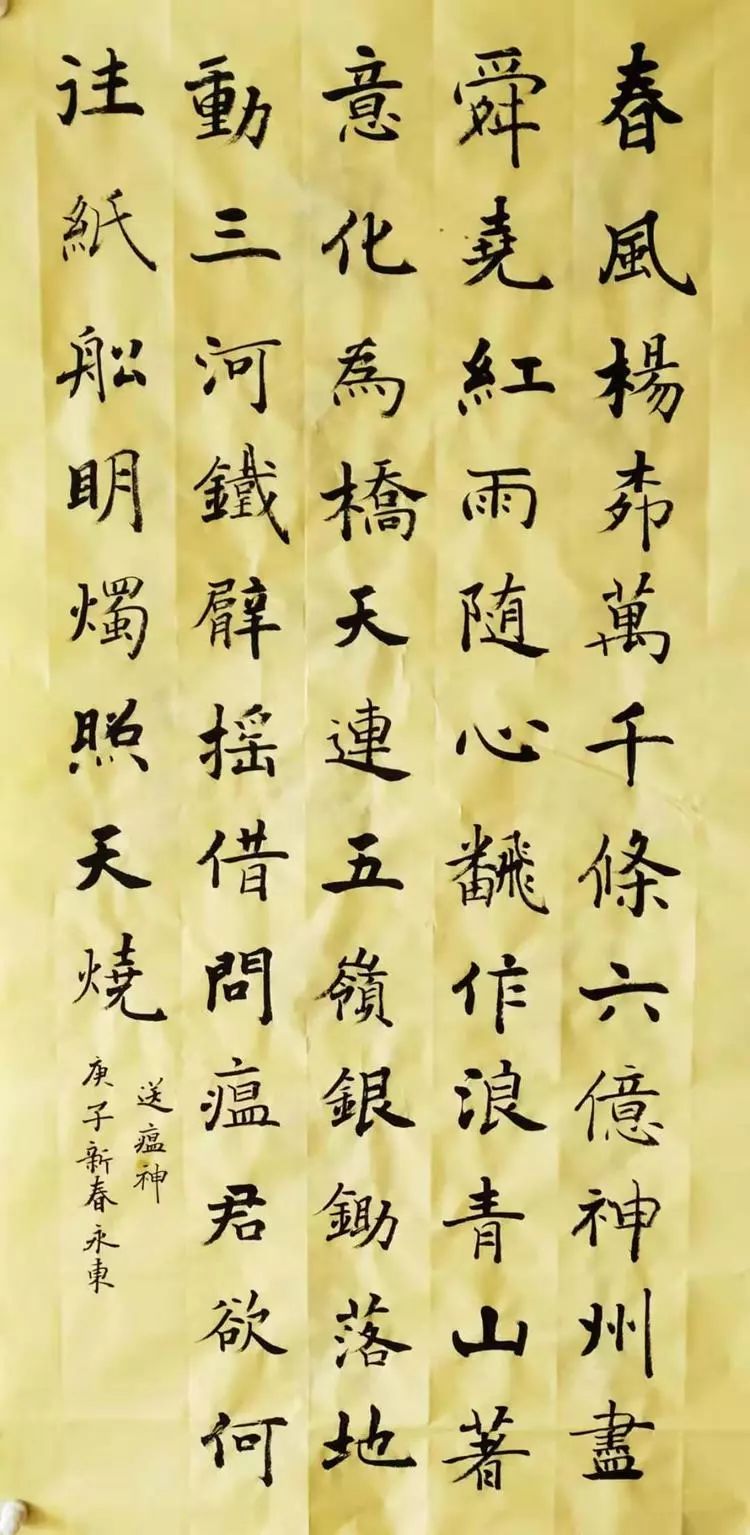 春風楊柳萬千條六億神州盡
舜堯紅雨随心飜作浪青山著
意化為橋天連五嶺銀鋤落地
動三河鐵臂摇借問瘟君欲何
往紙船明燭照天燒
送瘟神
庚子新春永東